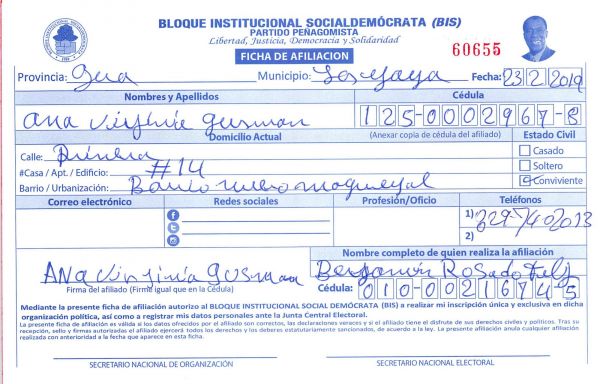 BLOQUE INSTITUCIONAL SOCIALDEMÓCRATA (BIS)
PARTIDO PEÑAGOMISTA
Libertad, Justicia, Democracia y Solidaridad
FICHA DE AFILIACION
60655
Provincia: Municipio: Los Yaya Fecha: 23 2 2019
Nombres y Apellidos Cédula
Ana Virginia Gusman 125-0002967-8
Domicilio Actual (Anexar copia de cédula del afiliado) Estado Civil
Calle: Primera Casado
#Casa / Apt. / Edificio: #14 Soltero
Barrio / Urbanización: Barrio nuevo Conviviente
Correo electrónico Redes sociales Profesión/Oficio Teléfonos
1) 829-740-2013
2)
Nombre completo de quien realiza la afiliación
Ana Virginia Gusman Benjamin Rosado Feliz
Firma del afiliado (Firme igual que en la Cédula) Cédula: 010-0021674-5
Mediante la presente ficha de afiliación autorizo al BLOQUE INSTITUCIONAL SOCIAL DEMÓCRATA (BIS) a realizar mi inscripción única y exclusiva en dicha
organización política, así como a registrar mis datos personales ante la Junta Central Electoral.
La presente ficha de afiliación es válida si los datos ofrecidos por el afiliado son correctos, las declaraciones veraces y si el afiliado tiene el disfrute de sus derechos civiles y políticos. Tras su
recepción, sello y firmas autorizadas el afiliado ejercerá todos los derechos y los deberes estatutariamente sancionados, de acuerdo a la ley. La presente afiliación anula cualquier afiliación
realizada con anterioridad a la fecha que aparece en esta ficha.
SECRETARIO NACIONAL DE ORGANIZACIÓN SECRETARIO NACIONAL ELECTORAL